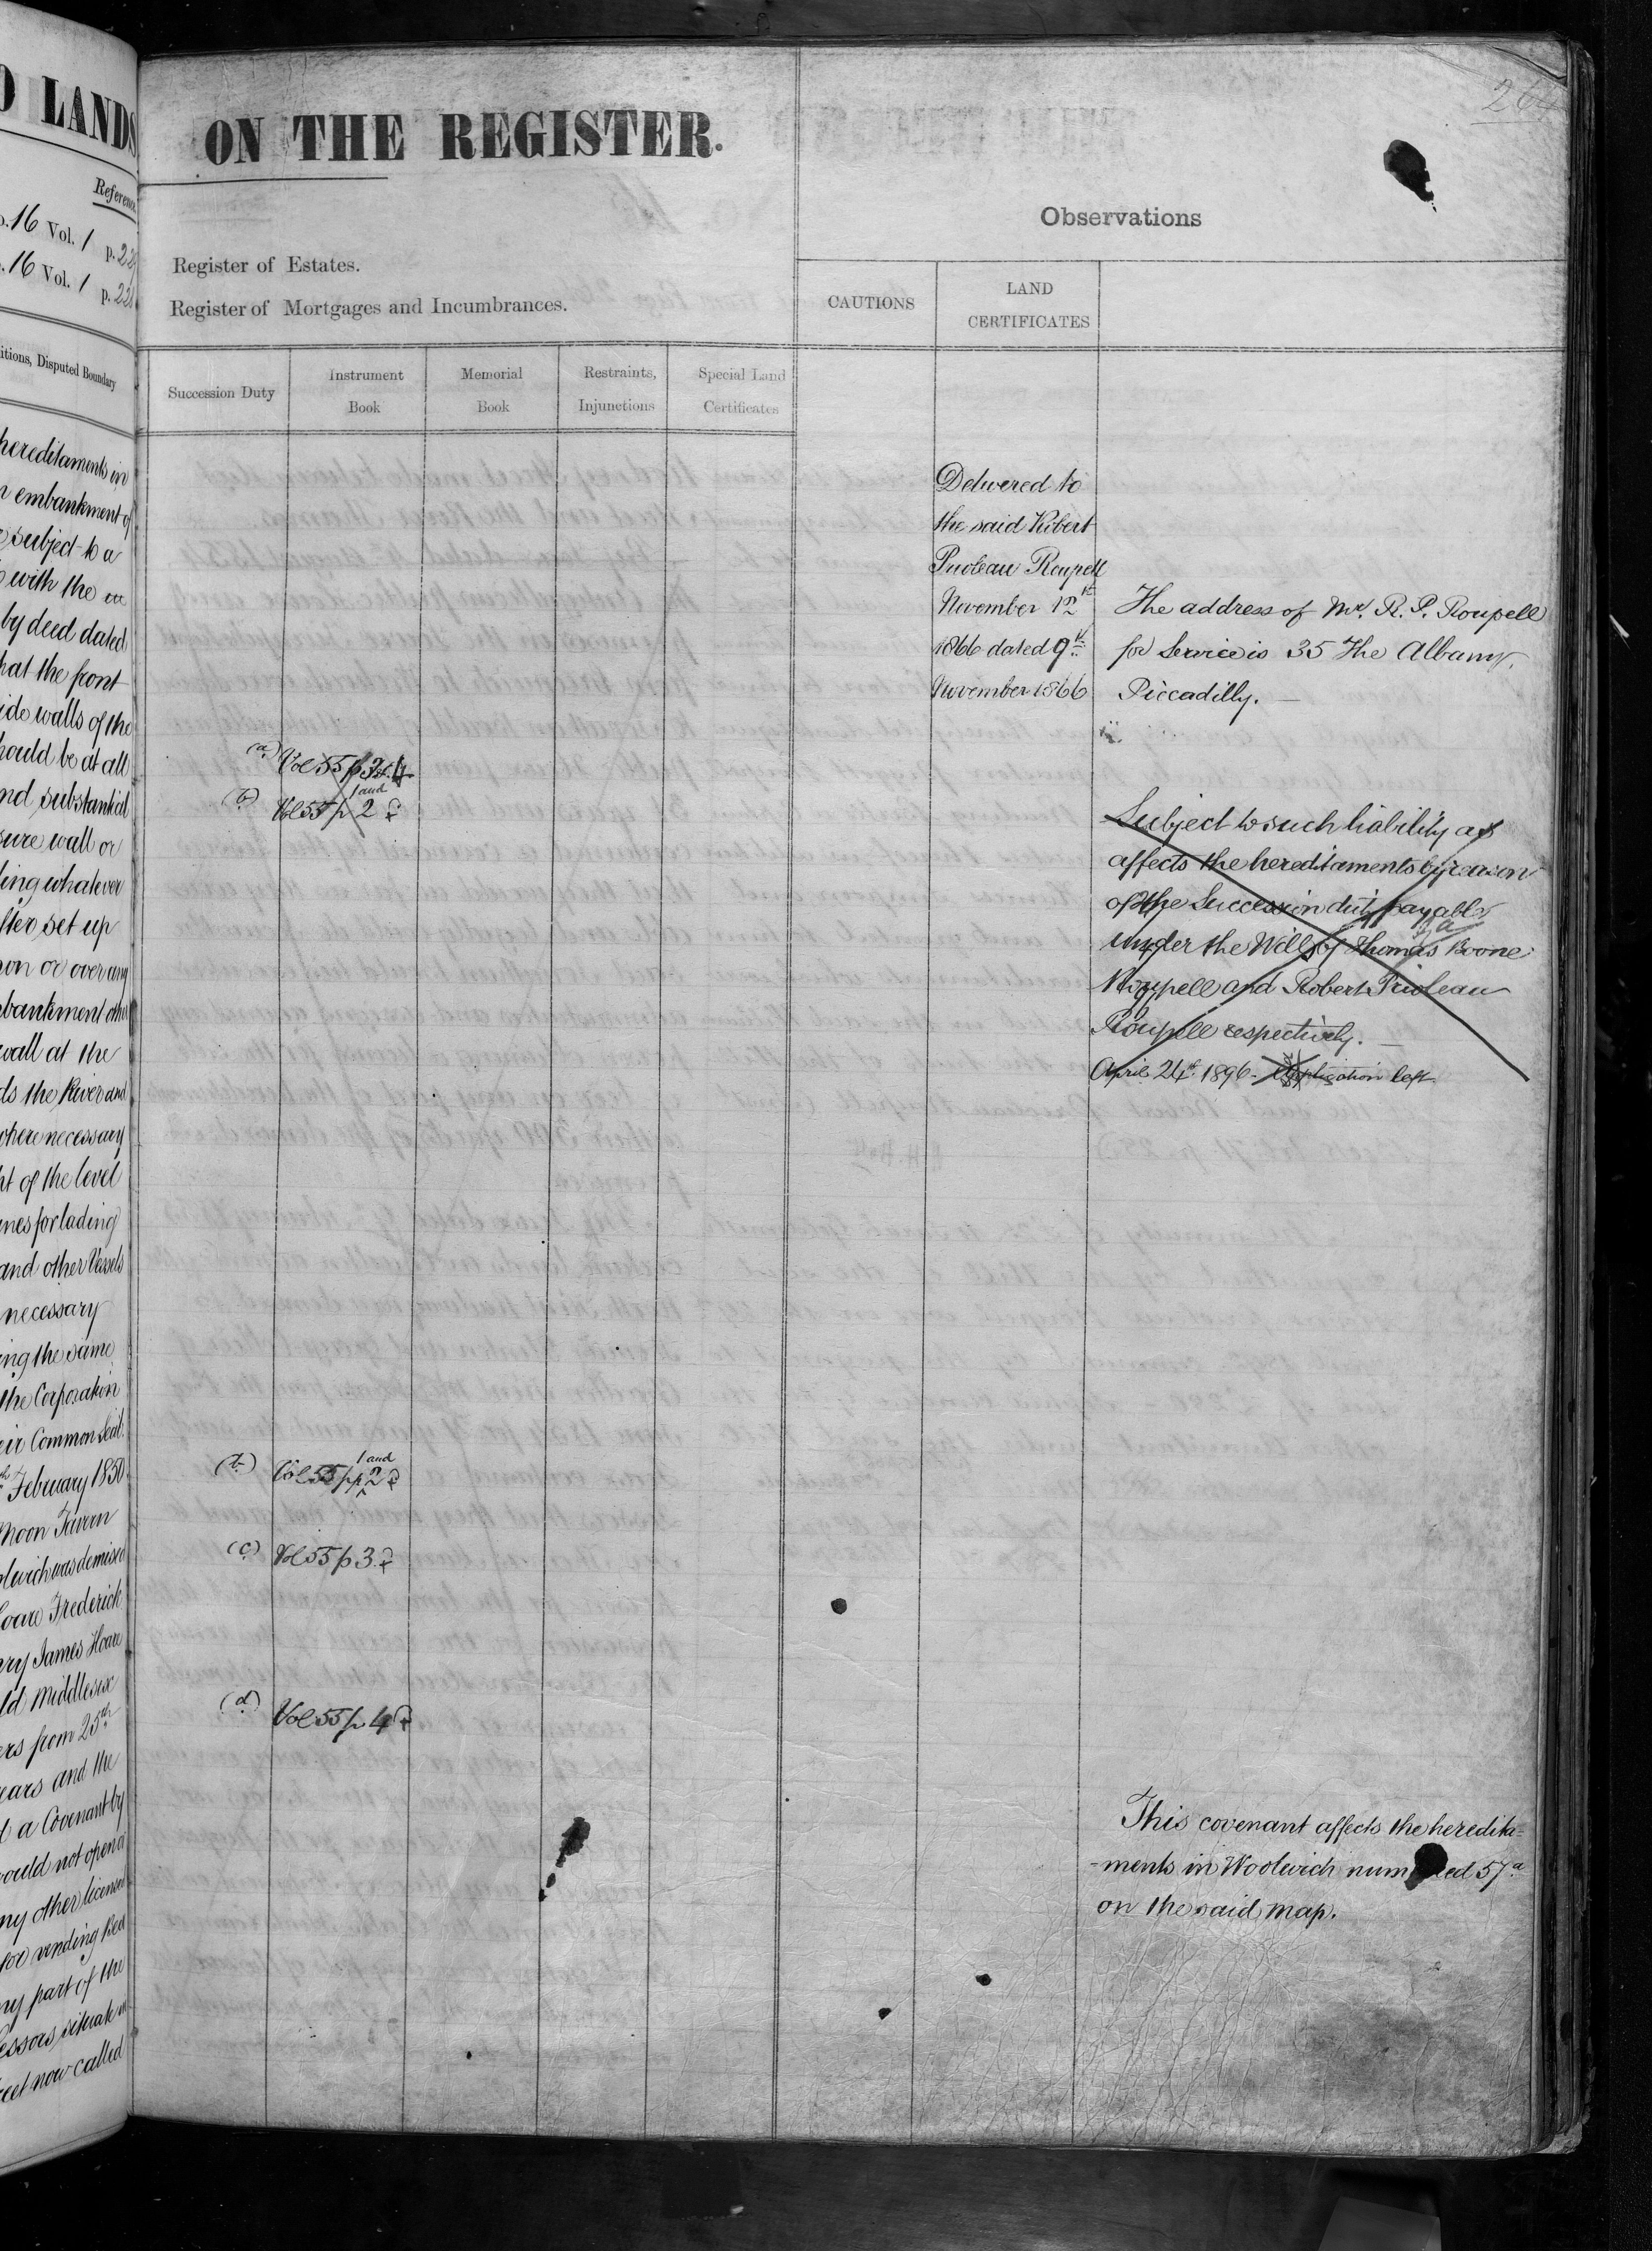 O LANDS
Reference
16 Vol. 1 p. 22
16 Vol. 1 p. 22
itions, Disputed Boundary
hereditaments in
n embankment of
subject to a
with the
by deed dated
hat the front
ide walls of the
hould be at all
nd substantial
sure wall or
ling whatever
fter set up
on or over any
mbankment other
wall at the
ds the River and
where necessary
ht of the level
anes for lading
and other Vessels
necessary
ing the same
the Corporation
eir Common Seal
th February 1850
Moon Tavern
olwich was demised
oare Frederick
ry James Hoare
ld Middlesex
ars from 25th
years and the
d a Covenant by
ould not open a
ny other licensed
for vending Beer
ny part of the
essors situate in
reet now called
264
ON THE REGISTER.
Observations
Register of Estates.
Register of Mortgages and Incumbrances.
CAUTIONS
LAND
CERTIFICATES
Succession Duty
Instrument
Book
Memorial
Book
Restraints,
Injunctions
Special Land
Certificates
Delivered to
the said Robert
Prioleau Roupell
November 12th
1866 dated 9th
November 1866
The address of Mr. R. P. Roupell
for Service is 35 The Albany,
Piccadilly.
(a) Vol 55 p
(b) Vol 55 p 1 and 2
Subject to such liability as
affects the hereditaments by reason
of the Succession duty payable
under the Wills of Thomas Boone
Roupell and Robert Prioleau
Roupell respectively.
April 24th 1896 - Application left.
(b) Vol 55 pp 1 and 2
(c) Vol 55 p 3
(d) Vol 55 p 4
This covenant affects the heredita-
-ments in Woolwich numbered 57a
on the said map.